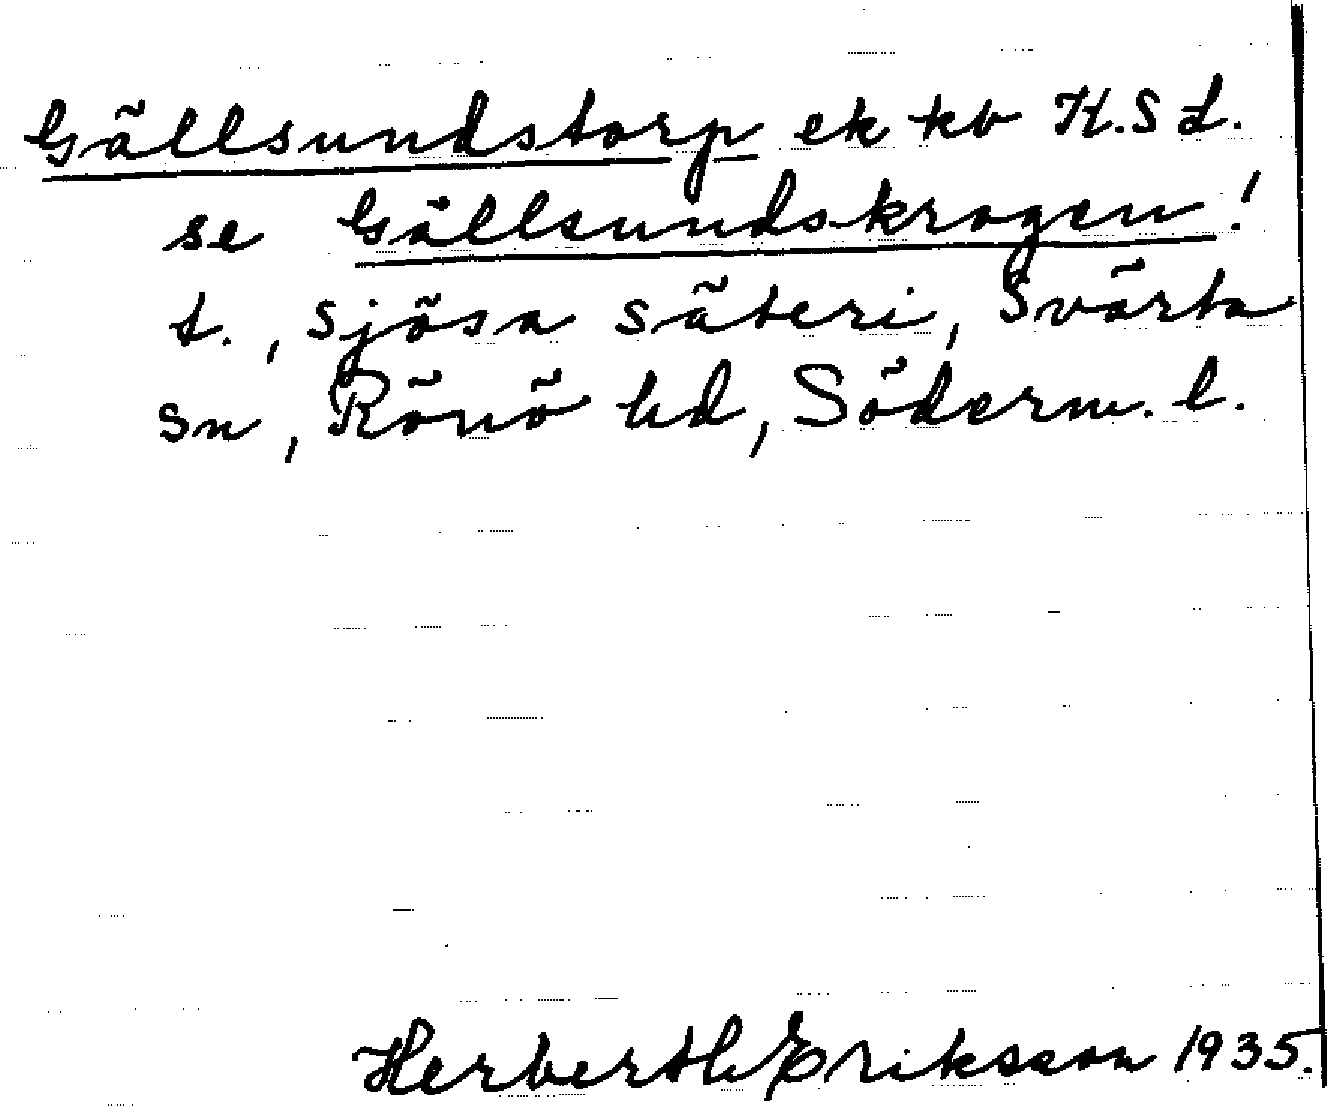 Gällsundstorp ek kb H.S L.
se Gällsundskrogen!
t., Sjösa säteri, Svärta
sn, Rönö hd, Söderm. l.
Herberth Eriksson 1935.